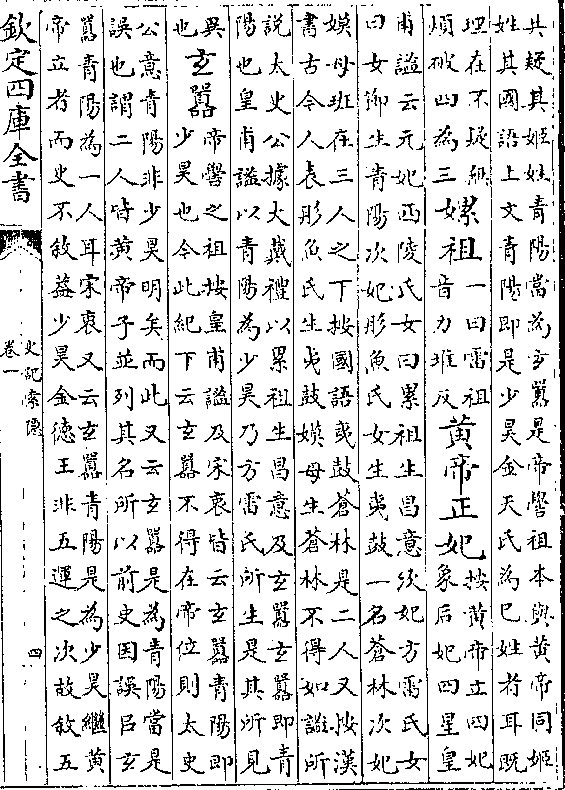 其疑其姬姓青陽當為玄囂是帝嚳祖本與黃帝同姬
姓其國語上文青陽即是少昊金天氏為已姓者耳既
理在不疑無
煩破四為三
嫘祖
一曰雷祖
音力堆反
黃帝正妃
按黃帝立四妃
象后妃四星皇
甫謐云元妃西陵氏女曰累祖生昌意次妃方雷氏女
曰女節生青陽次妃彤魚氏女生夷鼓一名蒼林次妃
嫫母班在三人之下按國語夷鼓蒼林是二人又按漢
書古今人表彤魚氏生夷鼓嫫母生蒼林不得如謐所
說太史公據大戴禮以累祖生昌意及玄囂玄囂即青
陽也皇甫謐以青陽為少昊乃方雷氏所生是其所見
異
也
玄囂
帝嚳之祖按皇甫謐及宋衷皆云玄囂青陽即
少昊也今此紀下云玄囂不得在帝位則太史
公意青陽非少昊明矣而此又云玄囂是為青陽當是
誤也謂二人皆黃帝子並列其名所以前史因誤㠯玄
囂青陽為一人耳宋衷又云玄囂青陽是為少昊繼黃
帝立者而史不敘蓋少昊金德王非五運之次故敘五
欽定四庫全書
史記索隱
卷一
四